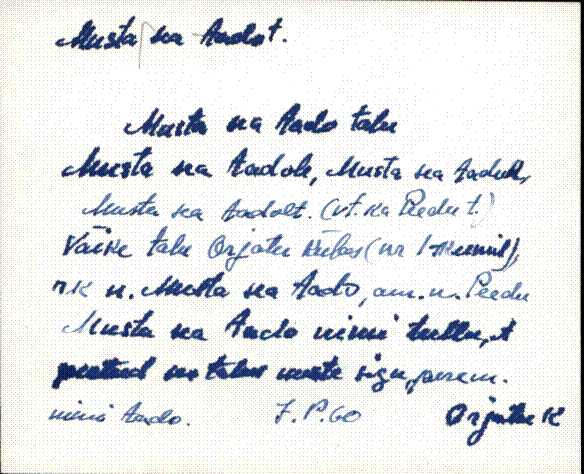 Musta na Aado t.
Musta na Aado talu
Musta na Aadole, Musta na Aadull,
Musta na Aadolt. (vt. ka Peedu t.)
Väike talu Orjatu külas (nr 1
rk n. Musta na Aado, am. n. Peedu
Musta na Aado nimi tulla, et
peetud talus musta sigu, perem.
nimi Aado. J. P. 60 Orjatu K